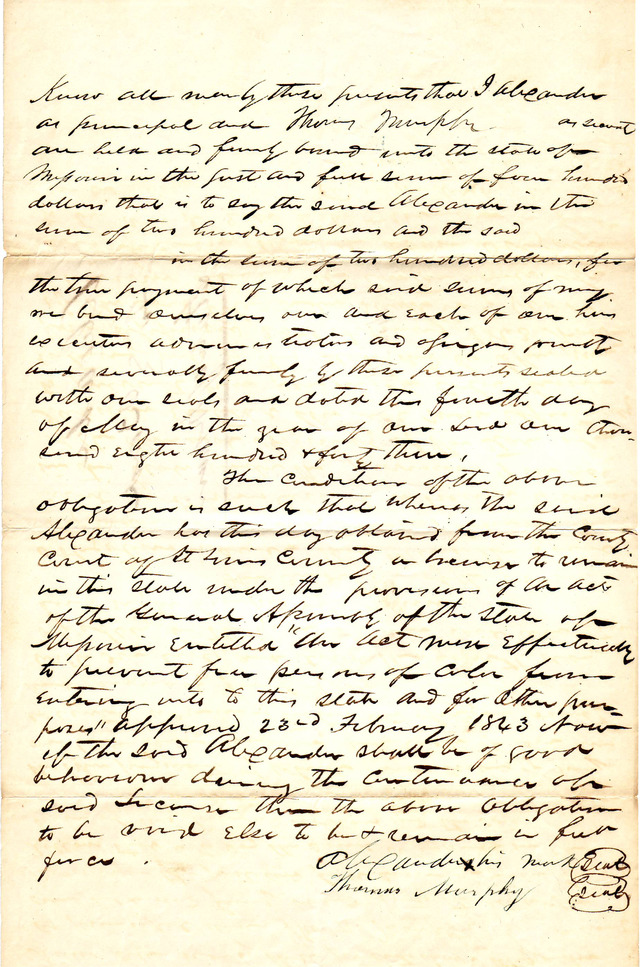 Know all men by these presents that I Alexander
as principal and Thomas Murphy as securit
are held and firmly bound unto the state of
Missouri in the just and full sum of four hundred
dollars that is to say the said Alexander in the
sum of two hundred dollars and the said
in the sum of two hundred dollars, for
the true payment of which said sums of money
we bind ourselves our and each of our heirs
executors administrators and assigns jointly
and severally firmly by these presents sealed
with our seals and dated this fourth day
of May in the year of our Lord one thou
sand eight hundred & forty three,
The condition of the above
obligation is such that whereas the said
Alexander has this day obtained from the County
Court of St Louis County a license to remain
in this state under the provisions of an act
of the General Assembly of the State of
Missouri Entitled "An Act more effectually
to prevent free persons of color from
entering into to this state and for other pur
poses" approved 23rd February 1843 Now
if the said Alexander shall be of good
behaviour during the continuance of
said License then the above obligation
to be void Else to be & remain in full
force.
Alexander x his mark Seal
Thomas Murphy Seal